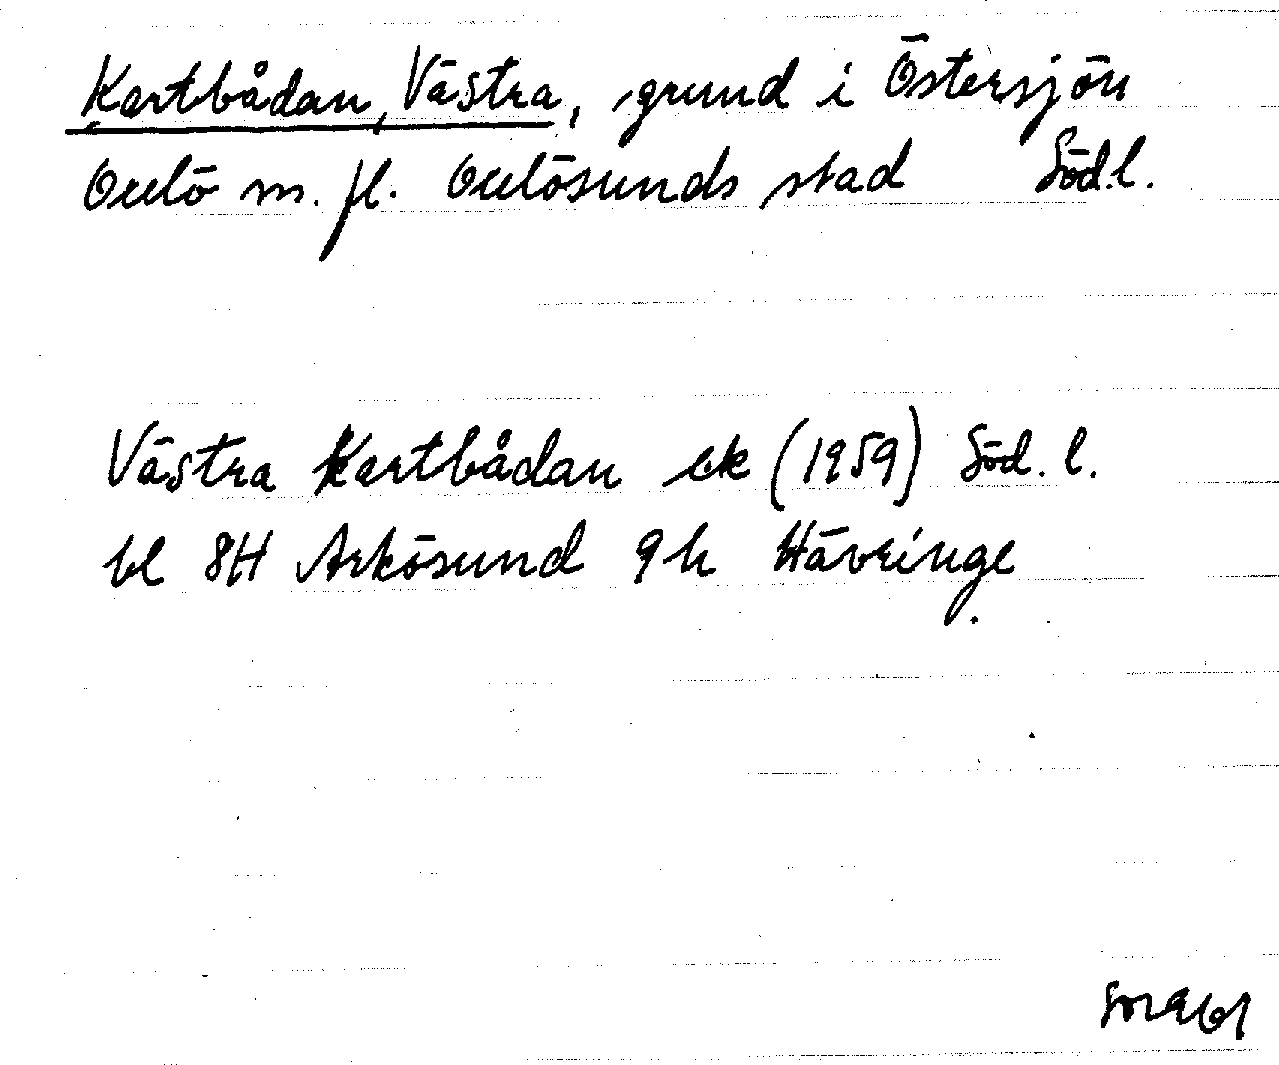 Kartbådan, Västra, grund i Östersjön
Oxelö m. fl. Oxelösunds stad Södl.
Västra Kartbådan ek (1959) Söd. l.
bl 8H Arkösund 9h Hävringe